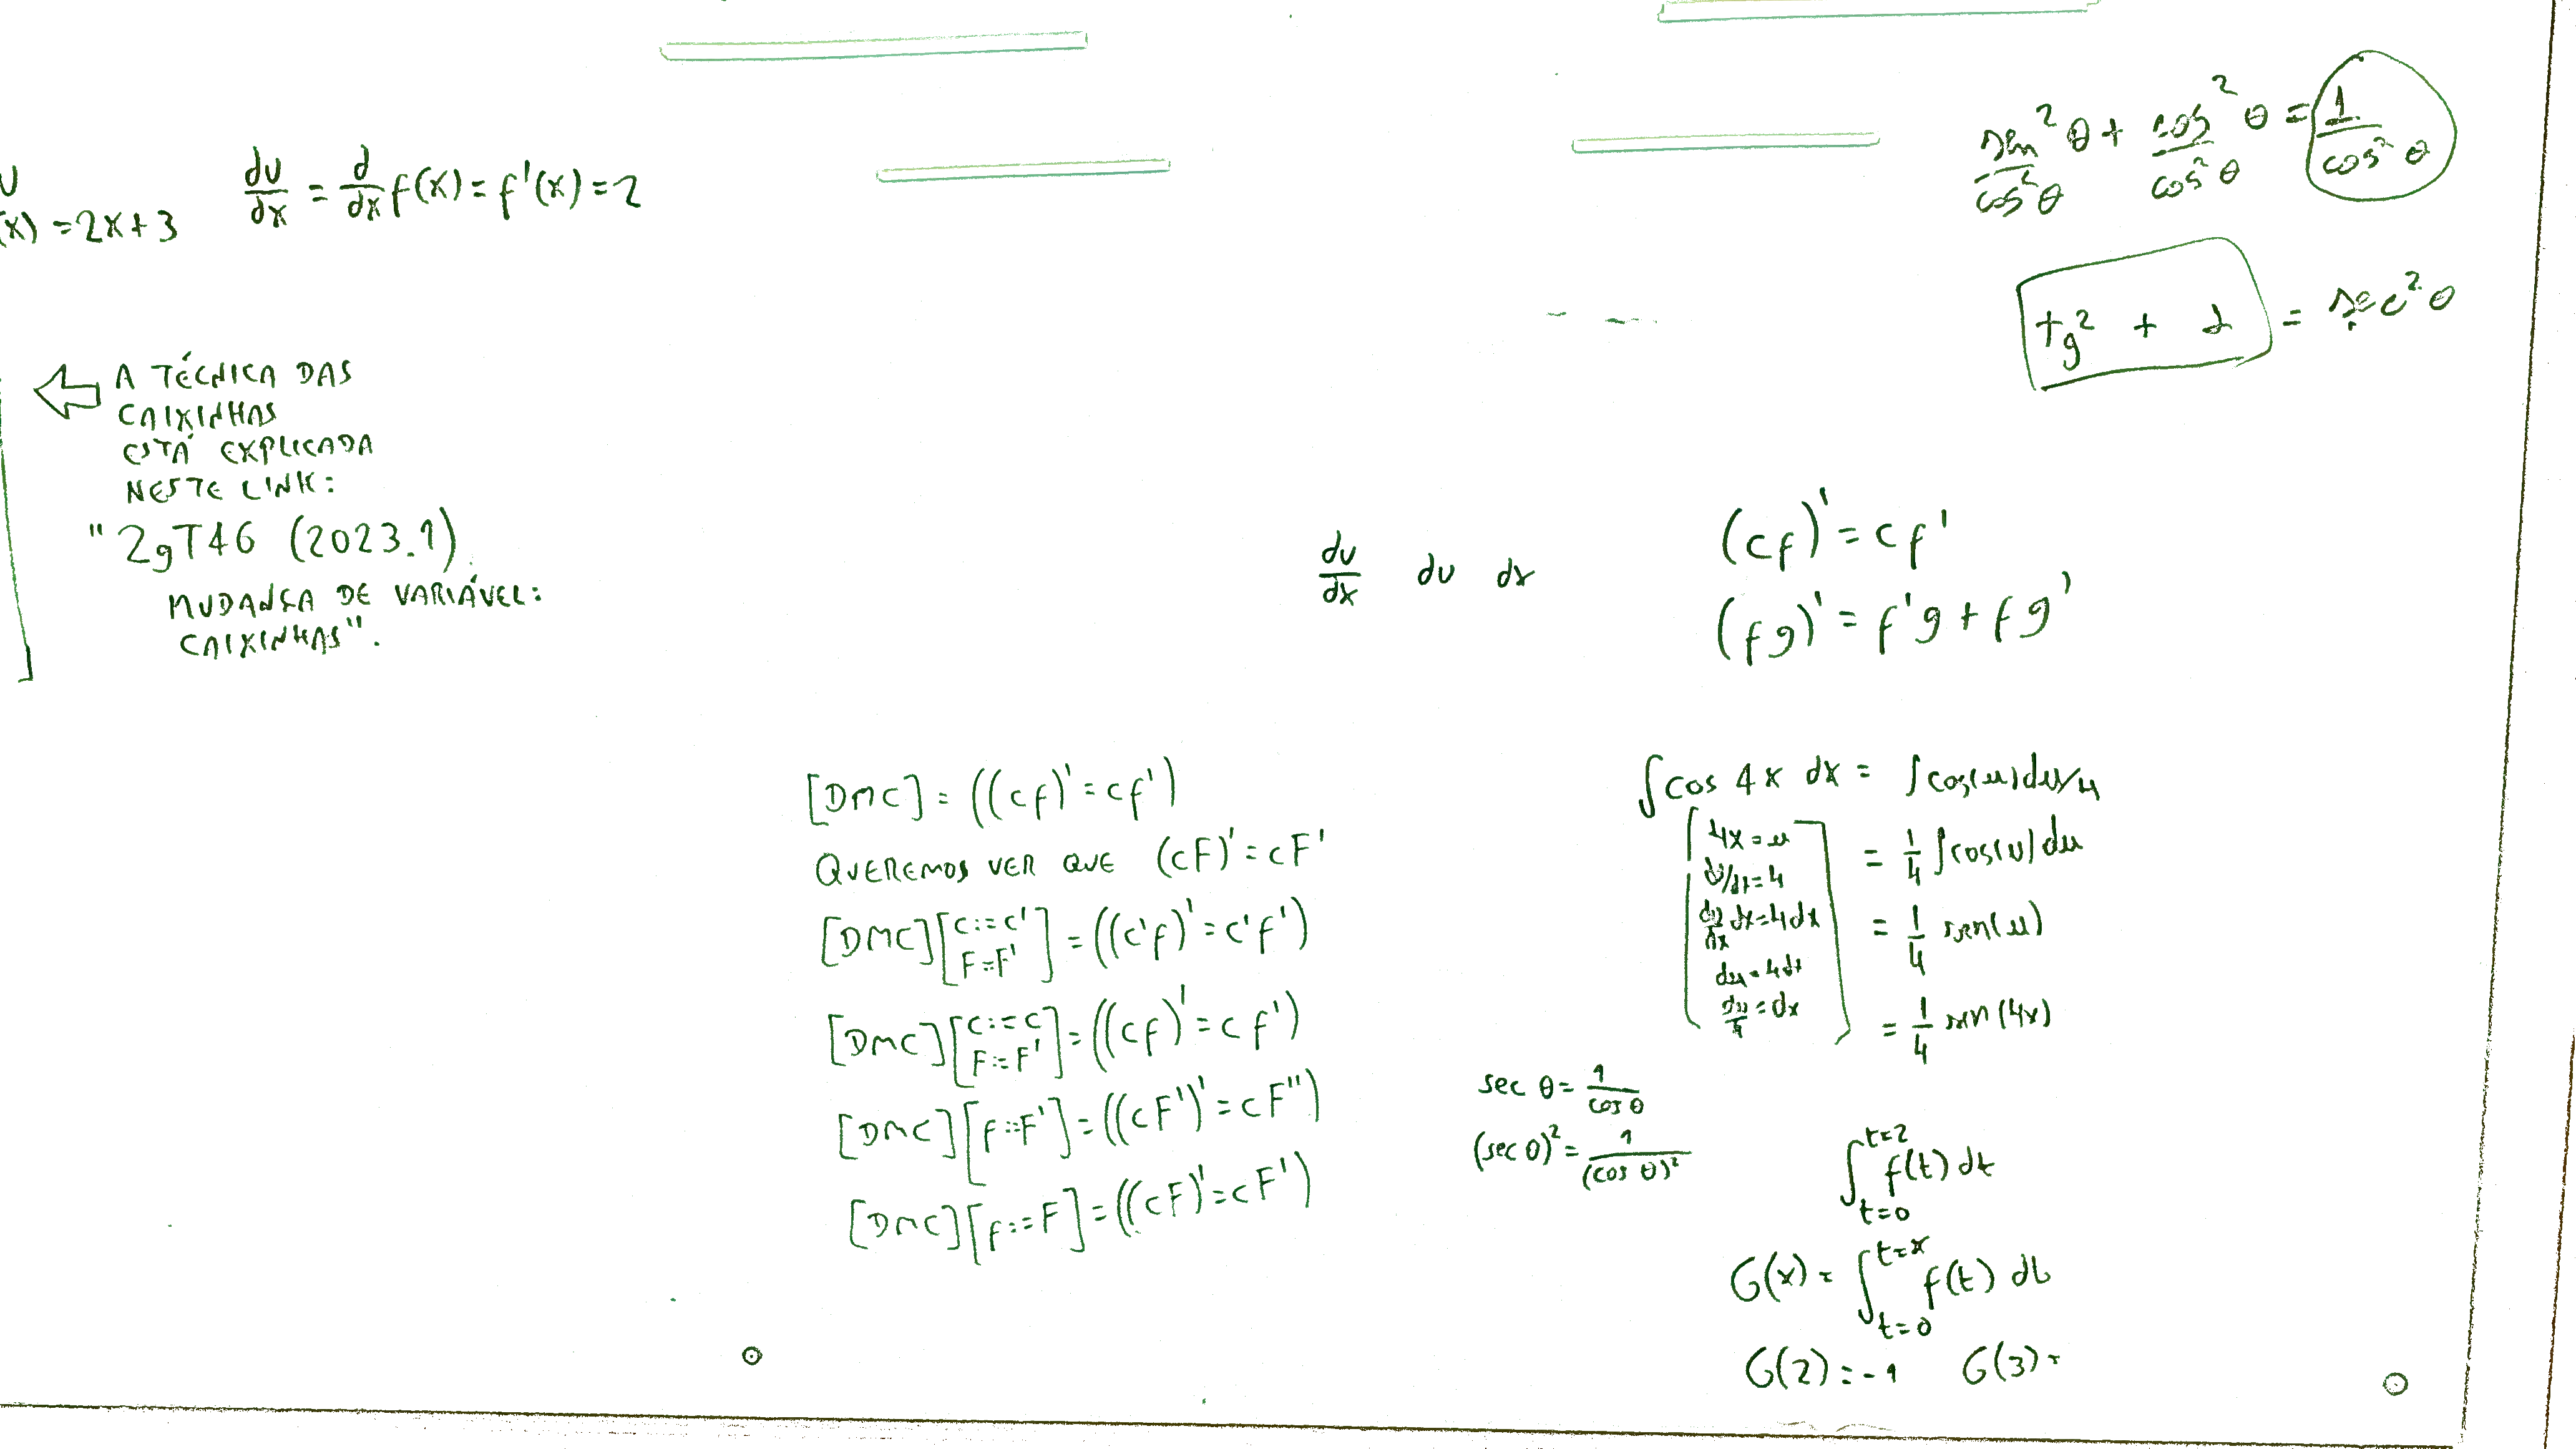 u
(x) = 2x+3
du/dx = d/dx f(x) = f'(x) = 2
sen²θ/cos²θ + cos²θ/cos²θ = 1/cos²θ
tg² + 1 = sec²θ
⇐ A TÉCNICA DAS
CAIXINHAS
ESTÁ EXPLICADA
NESTE LINK:
"2gT46 (2023.1)
MUDANÇA DE VARIÁVEL:
CAIXINHAS".
du/dx du dx
(cf)' = cf'
(fg)' = f'g + fg'
[DMC] = ((cf)' = cf')
QUEREMOS VER QUE (cF)' = cF'
[DMC][c:=c' F:=F'] = ((c'f)' = c'f')
[DMC][c:=c F:=F'] = ((cf)' = cf')
[DMC][f:=F'] = ((cF')' = cF'')
[DMC][f:=F] = ((cF)' = cF')
∫cos 4x dx = ∫cos(u)du/4
= 1/4 ∫cos(u) du
= 1/4 sen(u)
= 1/4 sen(4x)
4x = u
du/dx = 4
du/dx dx = 4dx
du = 4dx
du/4 = dx
sec θ = 1/cos θ
(sec θ)² = 1/(cos θ)²
∫t=0 t=2 f(t) dt
G(x) = ∫t=0 t=x f(t) dt
G(2) = -1 G(3) =